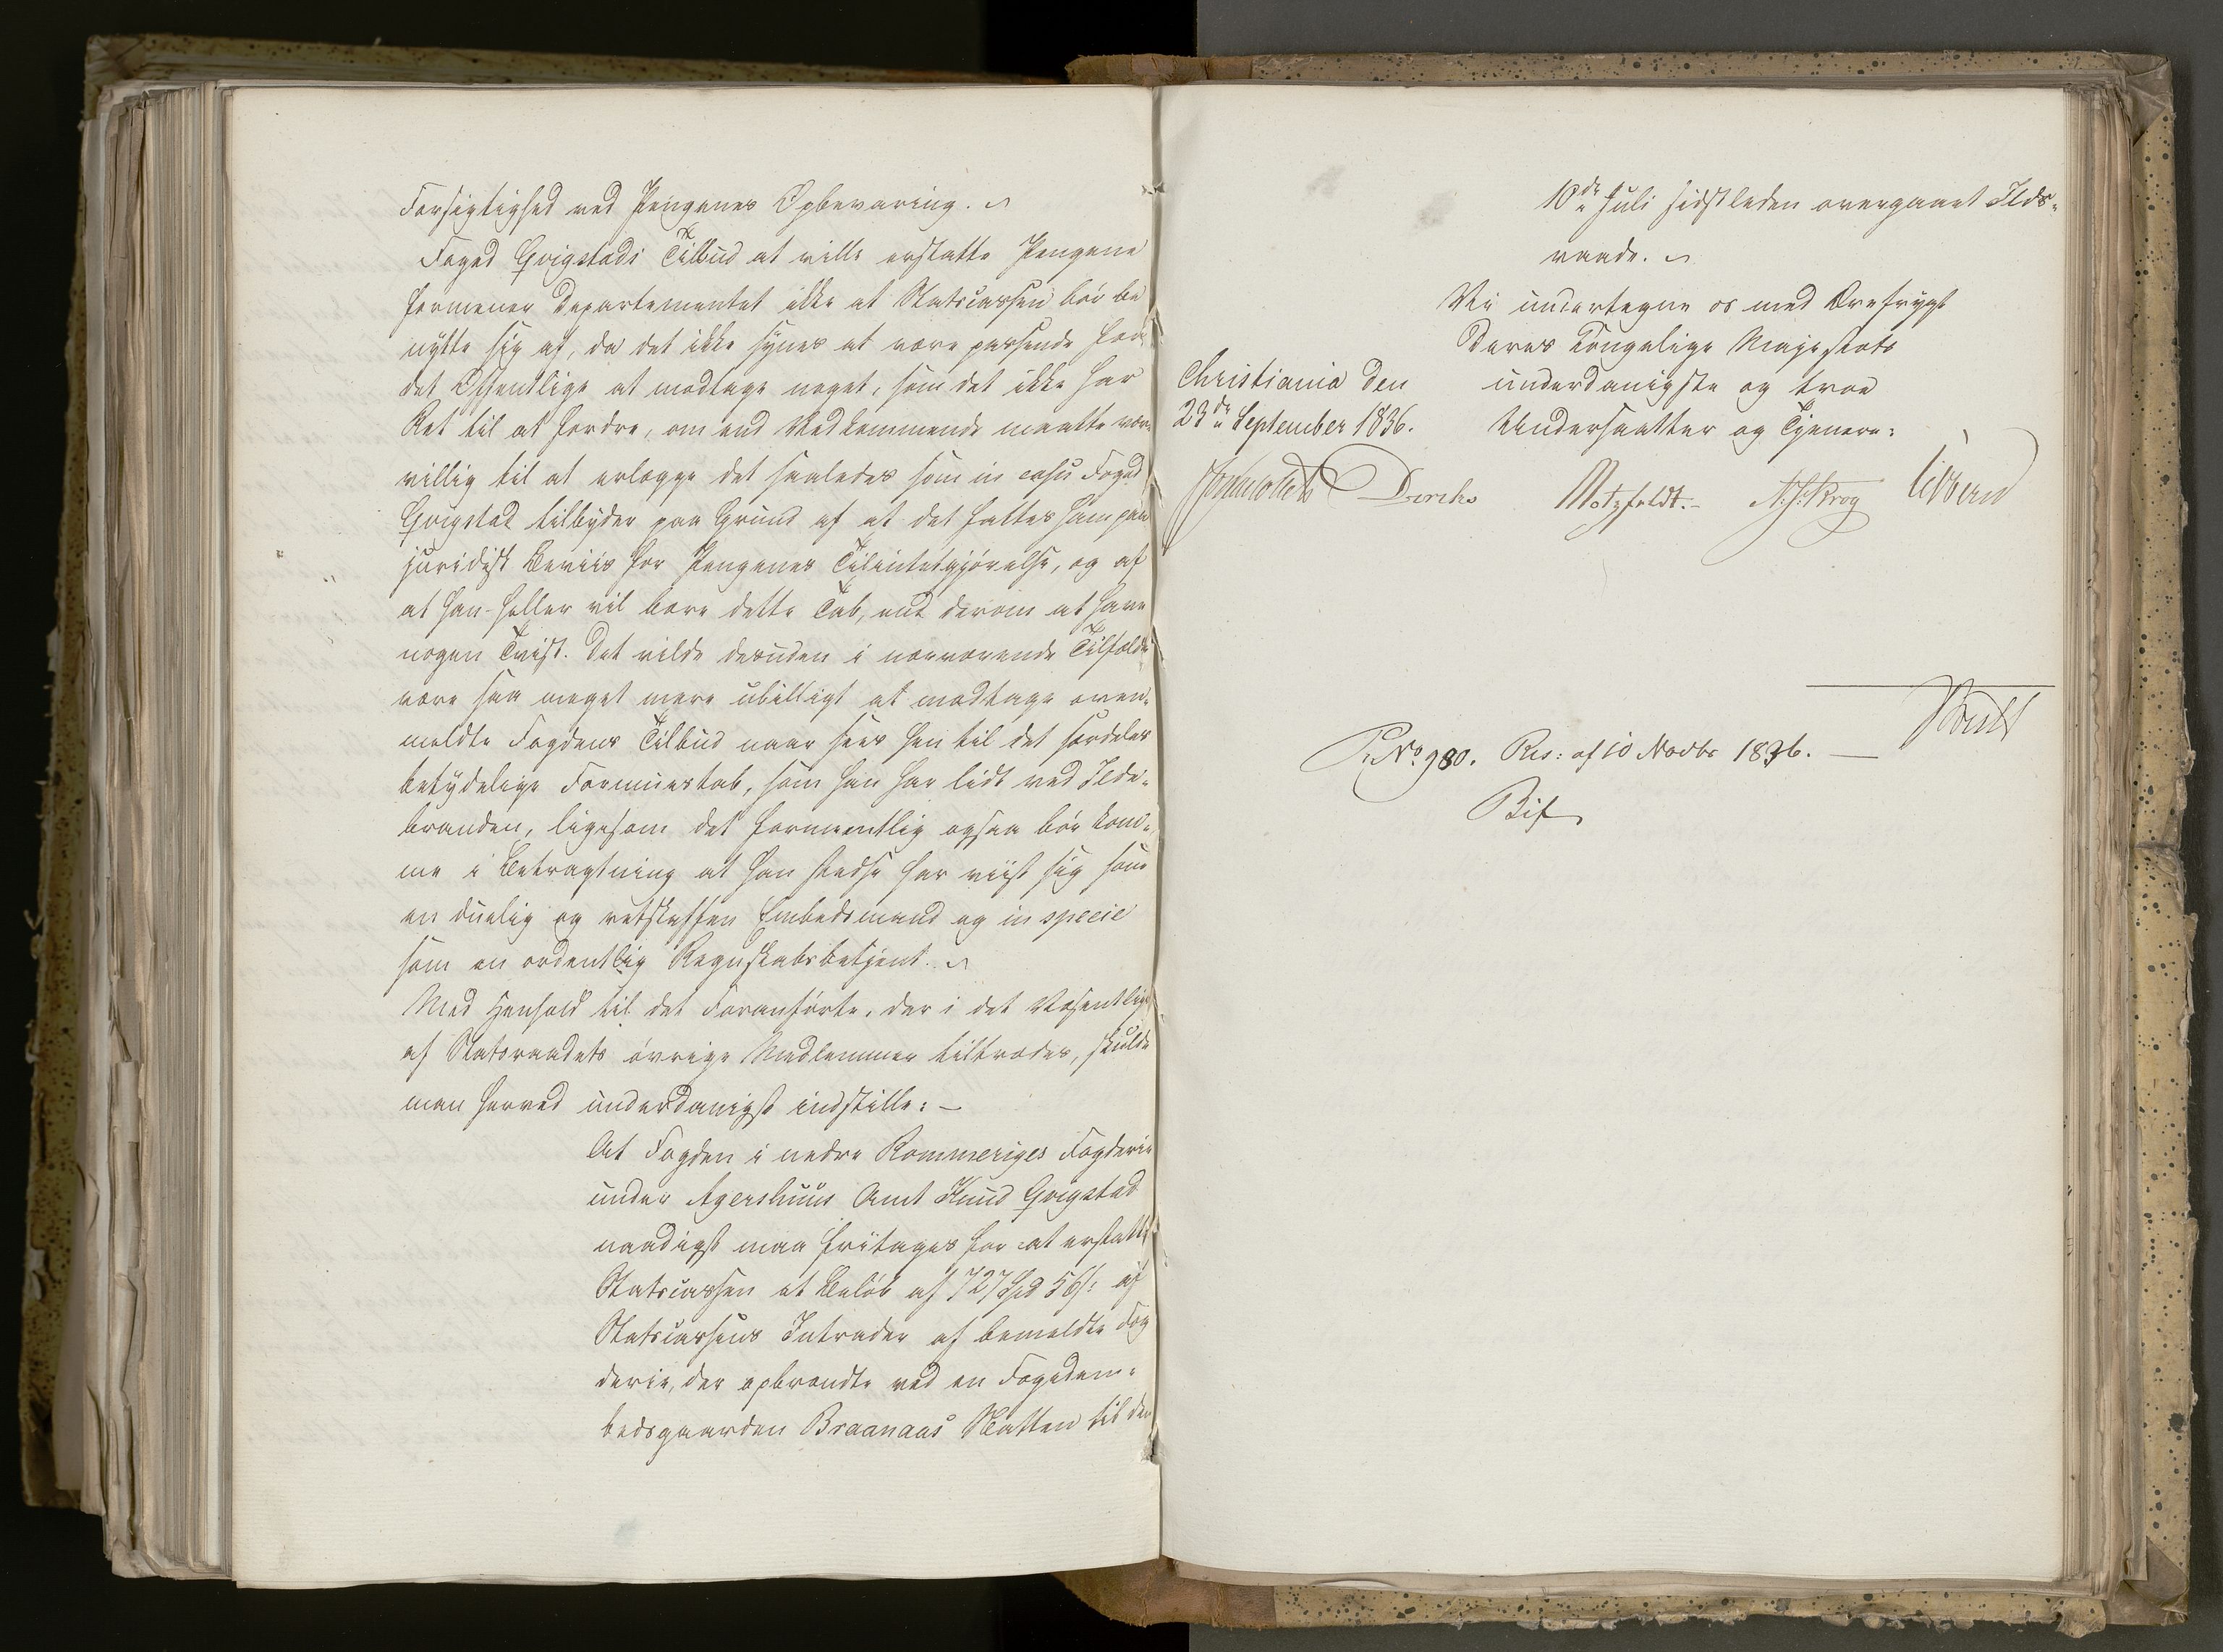 Forsigtighed ved Pengenes Opbevaring.
Foged Gvigstads Tilbud at ville erstatte Pengene
formener Departementet ikke at Statscassen bør be
nytte sig af, da det ikke synes at være passende for
det Offentlige at modtage noget, som det ikke har
Ret til at fordre, om end Vedkommende maatte være
villig til at erlægge det saaledes som in casu Foged
Gvigstad tilbyder paa Grund af at det fattes ham paa
juridisk Beviis for Pengenes Tilintetgjørelse, og af
at han heller vil bære dette Tab, end derom at have
nogen Tvist. Det vilde desuden i nærværende Tilfælde
være saa meget mere ubilligt at modtage oven-
meldte Fogdens Tilbud naar sees hen til det særdeles
betydelige Formuestab, som han har lidt ved Ilde-
branden, ligesom det formeentlig ogsaa bør kom-
me i Betragtning at han stedse har viist sig som
en duelig og retskaffen Embedsmand og in specie
som en ordentlig Regnskabsbetjent.
Med Henhold til det Foranførte, der i det Væsentlige
af Statsraadets øvrige Medlemmer tiltrædes, skulde
man herved underdanigst indstille: —
At Fogden i nedre Rommeriges Fogderie
under Agershuus Amt Knud Gvigstad
naadigst maa fritages for at erstatte
Statscassen et Beløb af 727 Spd 56 s: af
Statscassens Intrader af bemeldte Fog
derie, der opbrændte ved en Fogedem-
bedsgaarden Braanaas Natten til den
10de Juli sidstleden overgaaet Ilds-
vaade.
Vi undertegne os med Ærefrygt
Deres Kongelige Majestæts
Christiania den
underdanigste og troe
23de September 1836.
Undersaatter og Tjenere:
Diriks Motzfeldt. — N. J. Krog Vibe
P. No 980. Res: af 10 Novbr 1836. —
Bif